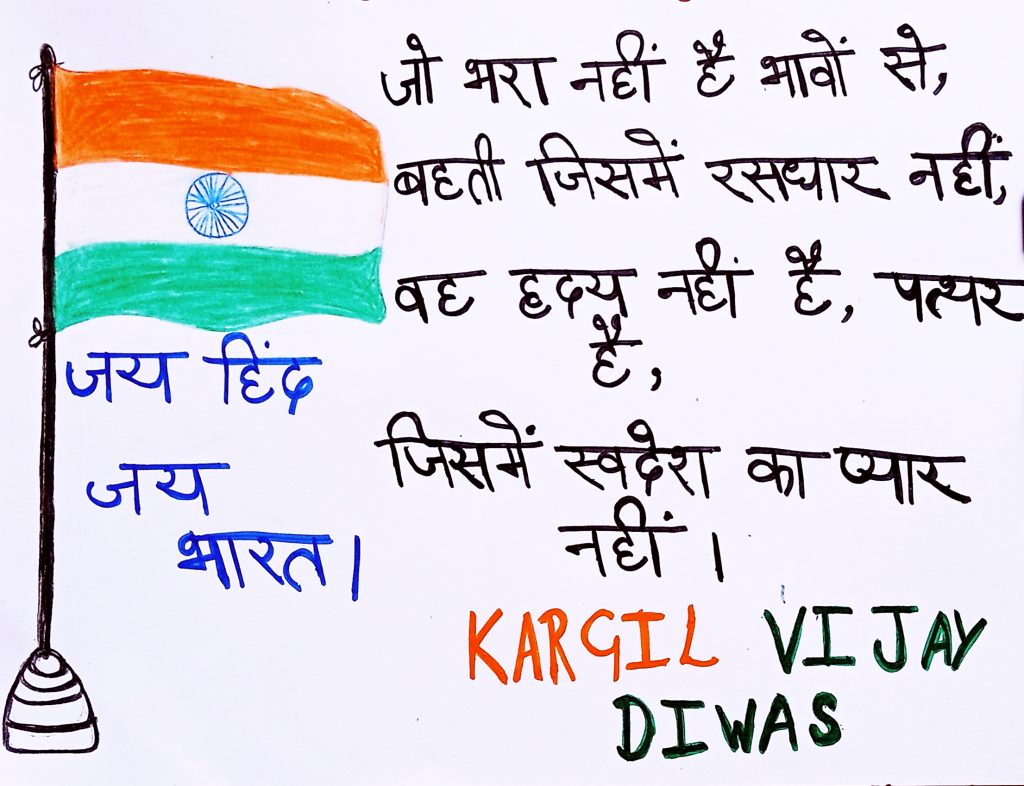 जो भरा नहीं है भावों से,
बहती जिसमें रसधार नहीं,
वह हृदय नहीं है, पत्थर
है,
जिसमें स्वदेश का प्यार
नहीं ।
जय हिंद
जय
भारत ।
KARGIL VIJAY
DIWAS